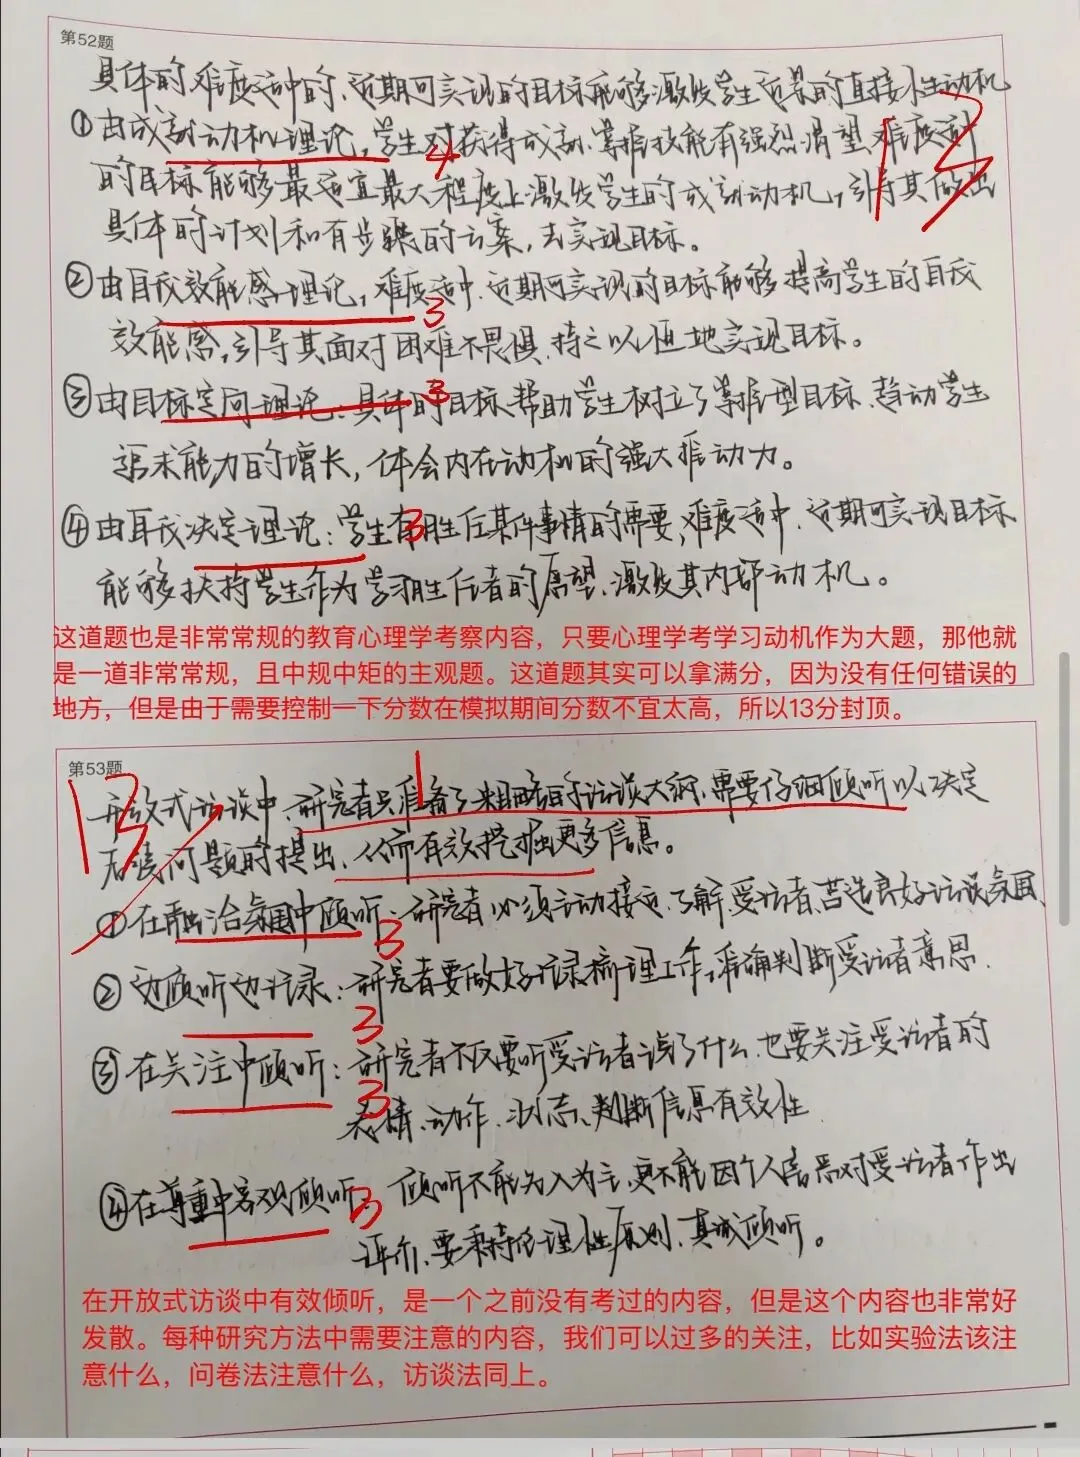 第52题
具体的难度适中的、近期可实现的目标能够激发学生近景的直接性动机
①由成就动机理论,学生对获得成就、掌握技能有强烈渴望,难度适中
4
13
的目标能够最适宜最大程度上激发学生的成就动机,引导其做出
具体的计划和有步骤的方案,去实现目标。
②由自我效能感理论,难度适中、近期可实现的目标能够提高学生的自我
3
效能感,引导其面对困难不畏惧、持之以恒地实现目标。
③由目标定向理论:具体的目标帮助学生树立了掌握型目标、趋动学生
3
追求能力的增长,体会内在动机的强大推动力。
④由自我决定理论:学生有胜任某件事情的需要,难度适中、近期可实现目标
3
能够扶持学生作为学习胜任者的愿望、激发其内部动机。
这道题也是非常常规的教育心理学考察内容,只要心理学考学习动机作为大题,那他就
是一道非常常规,且中规中矩的主观题。这道题其实可以拿满分,因为没有任何错误的
地方,但是由于需要控制一下分数在模拟期间分数不宜太高,所以13分封顶。
第53题
13
1
开放式访谈中,研究者只准备了粗略的访谈大纲、需要仔细倾听以决定
后续问题的提出、从而有效挖掘更多信息。
①在融洽氛围中倾听:研究者必须主动接近、了解受访者、营造良好访谈氛围、
3
②边倾听边记录:研究者要做好记录梳理工作,准确判断受访者意思.
3
③在关注中倾听:研究者不仅要听受访者说了什么、也要关注受访者的
3
表情、动作、状态、判断信息有效性
④在尊重中客观倾听 倾听不能先入为主、更不能因个人喜恶对受访者作出
3
评价、要秉持伦理性原则、真诚倾听。
在开放式访谈中有效倾听,是一个之前没有考过的内容,但是这个内容也非常好
发散。每种研究方法中需要注意的内容,我们可以过多的关注,比如实验法该注
意什么,问卷法注意什么,访谈法同上。